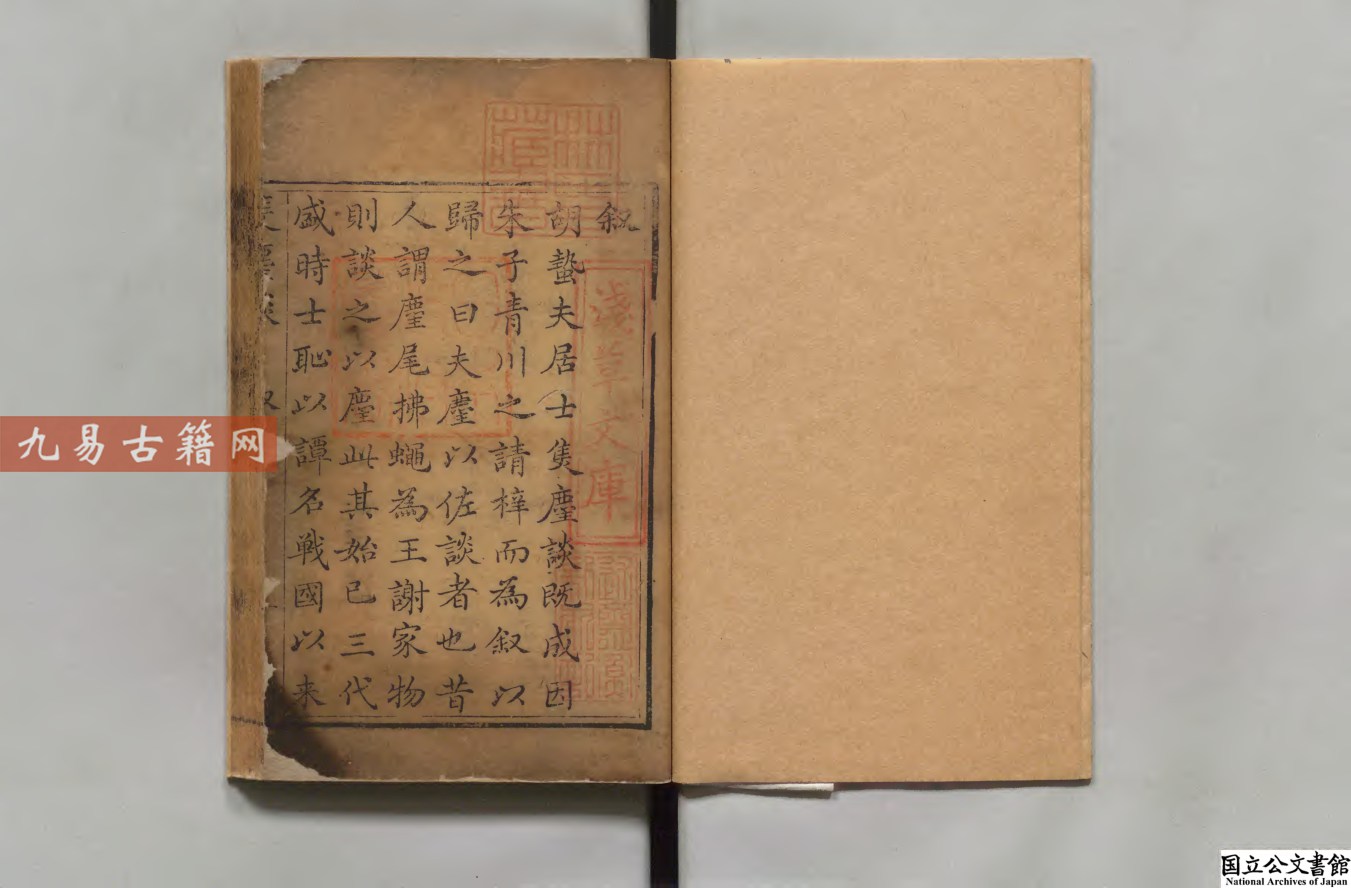 叙
胡蟄夫居士隻麈談既成因
朱子青川之請梓而為叙以
歸之曰夫麈以佐談者也昔
人謂麈尾拂蠅為王謝家物
則談之以麈此其始已三代
盛時士恥以譚名戰國以来
淺草文庫
九易古籍网
国立公文書館
National Archives of Japan